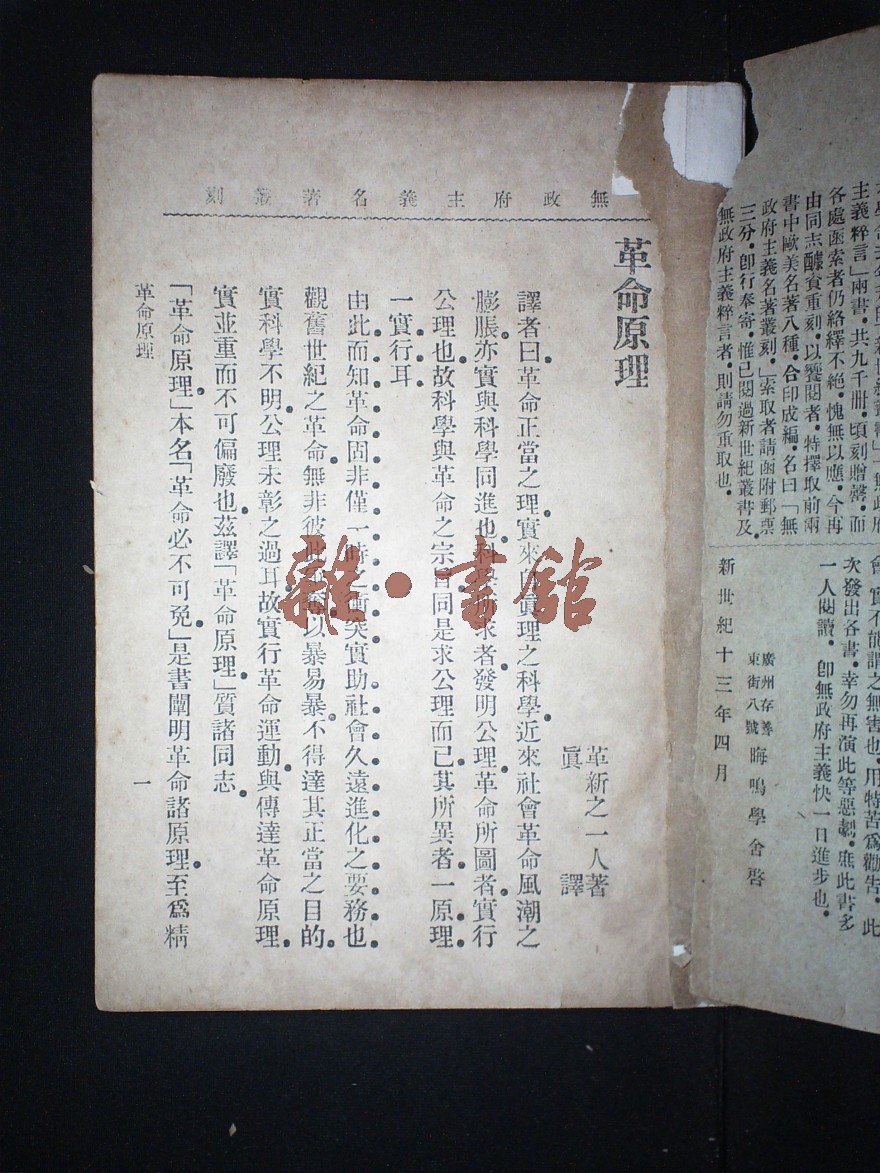 主義粹言」兩書．共九千冊．頃刻贈罄．而
各處函索者仍絡繹不絕．愧無以應．今再
由同志醵資重刻．以饗閱者．特擇取前兩
書中歐美名著八種．合印成編．名曰「無
政府主義名著叢刻．」索取者請函附郵票
三分．卽行奉寄．惟已閱過新世紀叢書及
無政府主義粹言者．則請勿重取也．
會．實不能謂之無害也．用特苦爲勸告．此
次發出各書．幸勿再演此等惡劇．庶此書多
一人閱讀．卽無政府主義快一日進步也．
廣州存善
東街八號
晦鳴學舍啓
新世紀十三年四月
無政府主義名著叢刻
革命原理
革新之一人著
眞　譯
譯者曰革命正當之理．實來自眞理之科學．近來社會革命風潮之
膨脹．亦實與科學同進也．科學所求者．發明公理．革命所圖者．實行
公理也．故科學與革命之宗旨．同是求公理而已．其所異者．一原理．
一實行耳．
由此而知革命固非僅一時之衝突．實助社會久遠進化之要務也．
觀舊世紀之革命．無非彼此爭奪．以暴易暴．不得達其正當之目的．
實科學不明．公理未彰之過耳．故實行革命運動．與傳達革命原理．
實並重而不可偏廢也．茲譯「革命原理．」質諸同志．
「革命原理．」本名「革命必不可免．」是書闡明革命諸原理．至爲精
革命原理
一
雜·書館